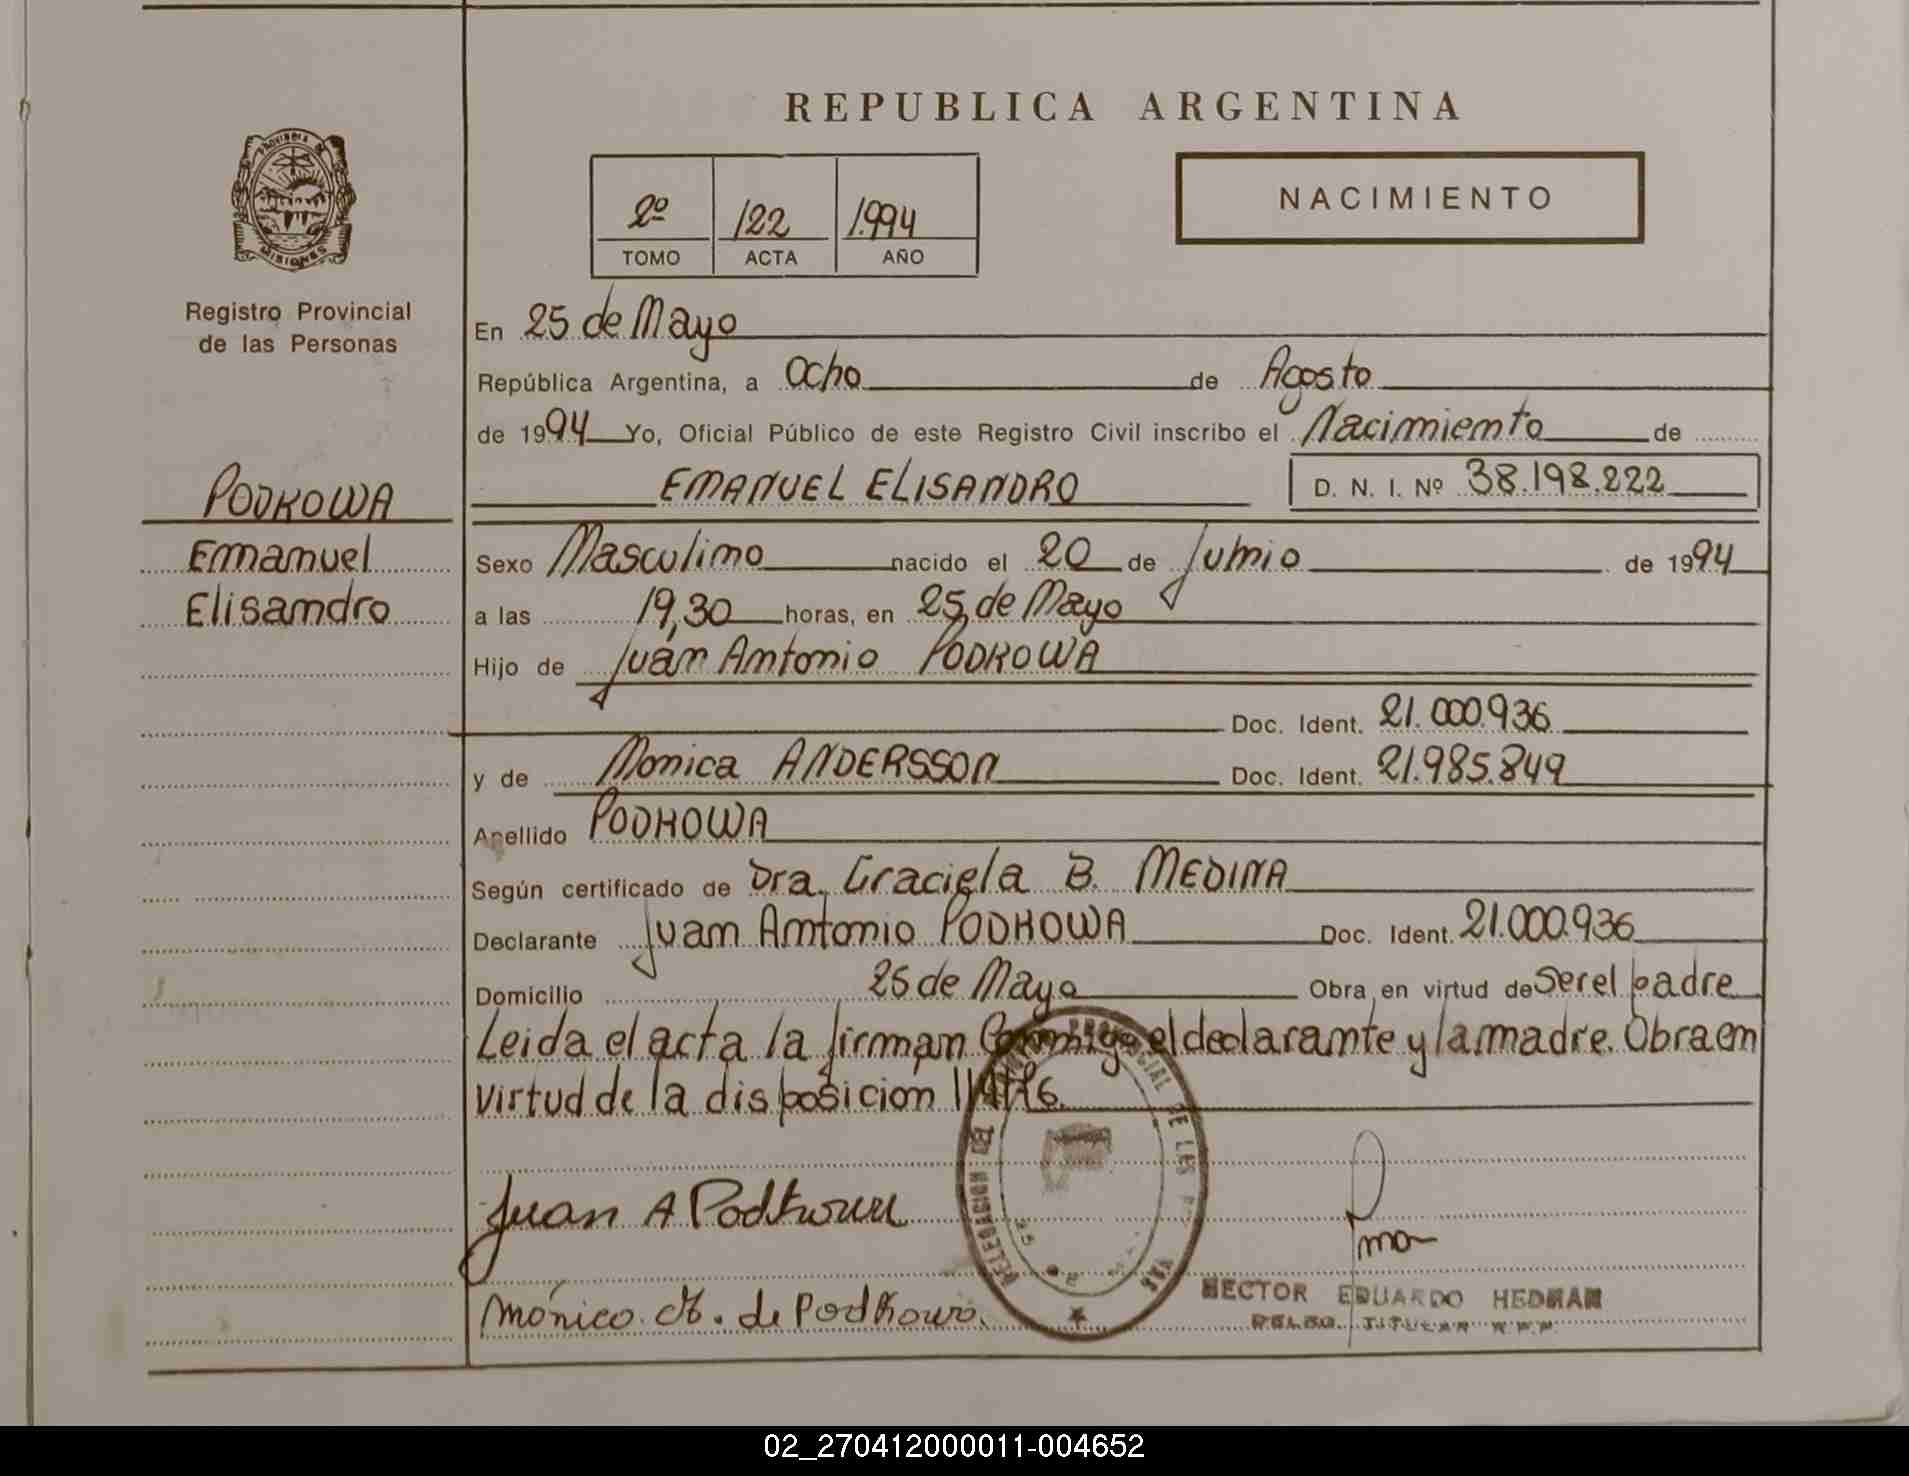 REPUBLICA ARGENTINA
PROVINCIA DE
MISIONES
2º 122 1.994
TOMO ACTA AÑO
NACIMIENTO
Registro Provincial
de las Personas
En 25 de Mayo
República Argentina, a Ocho de Agosto
de 1994 Yo, Oficial Público de este Registro Civil inscribo el Nacimiento de
EMANUEL ELISANDRO D. N. I. Nº 38.198.222
PODKOWA
Emanuel
Elisandro
Sexo Masculino nacido el 20 de Junio de 1994
a las 19,30 horas, en 25 de Mayo
Hijo de Juan Antonio PODKOWA
Doc. Ident. 21.000.936
y de Monica ANDERSSON Doc. Ident. 21.985.849
Apellido PODKOWA
Según certificado de Dra. Graciela B. MEDINA
Declarante Juan Antonio PODKOWA Doc. Ident. 21.000.936
Domicilio 25 de Mayo Obra en virtud de Ser el padre
Leida el acta la firman Conmigo el declarante y la madre. Obra en
virtud de la disposicion
Juan A Podkowa
Mónica de Podkowa
PROVINCIAL DE LAS
DELEGACION
HECTOR EDUARDO HEDMAN
TITULAR
02_270412000011-004652